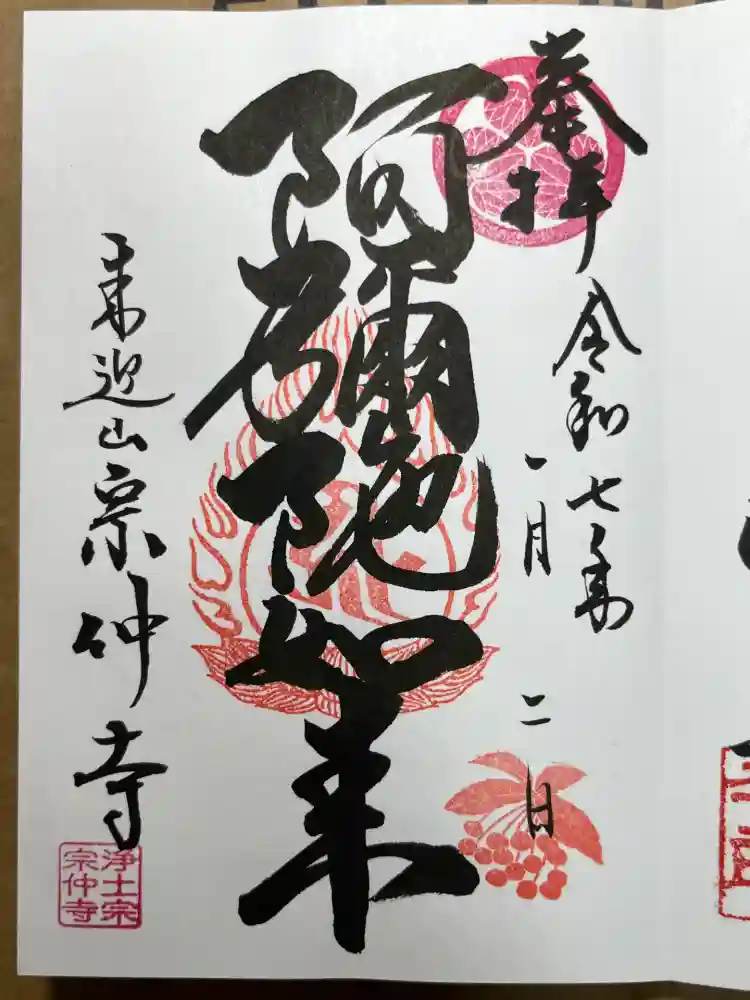 奉拝
令和七年
一月
二日
阿彌陀如来
来迎山宗仲寺
浄土宗
宗仲寺